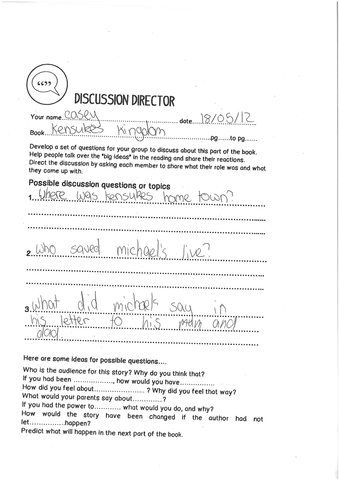 DISCUSSION DIRECTOR
Your name casey date 18/05/12
Book Kensukes Kingdom pg......to pg......
Develop a set of questions for your group to discuss about this part of the book.
Help people talk over the "big ideas" in the reading and share their reactions.
Direct the discussion by asking each member to share what their role was and what
they came up with.
Possible discussion questions or topics
1. Where was kensukes home town?
2. Who saved michael's live?
3. What did michael say in
his letter to his mum and
dad
Here are some ideas for possible questions....
Who is the audience for this story? Why do you think that?
If you had been .................., how would you have...............
How did you feel about...................... ? Why did you feel that way?
What would your parents say about.............?
If you had the power to............ what would you do, and why?
How would the story have been changed if the author had not
let................happen?
Predict what will happen in the next part of the book.